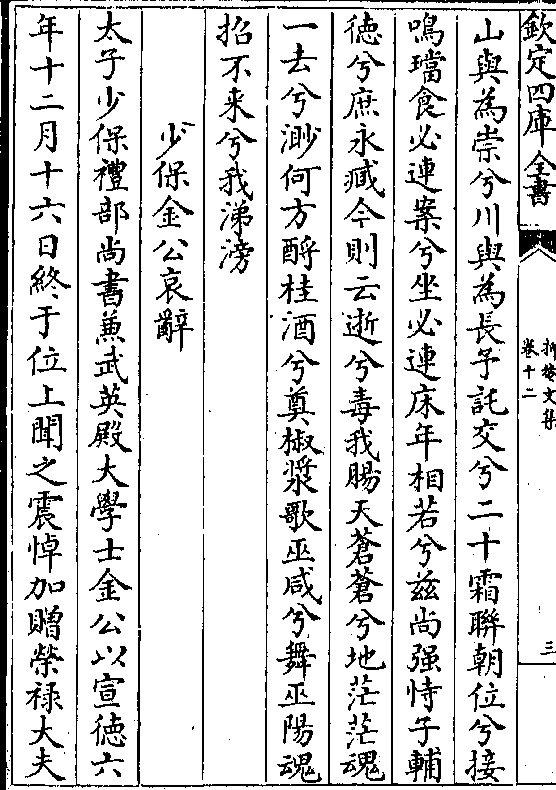 欽定四庫全書
卷十二
三
山與為崇兮川與為長予託交兮二十霜聯朝位兮接
鳴璫食必連案兮坐必連床年相若兮兹尚强恃子輔
徳兮庶永臧今則云逝兮毒我腸天蒼蒼兮地茫茫魂
一去兮渺何方酹桂酒兮奠椒漿歌巫咸兮舞巫陽魂
招不来兮我涕滂
少保金公哀辭
太子少保禮部尚書兼武英殿大學士金公以宣徳六
年十二月十六日終于位上聞之震悼加贈榮禄大夫